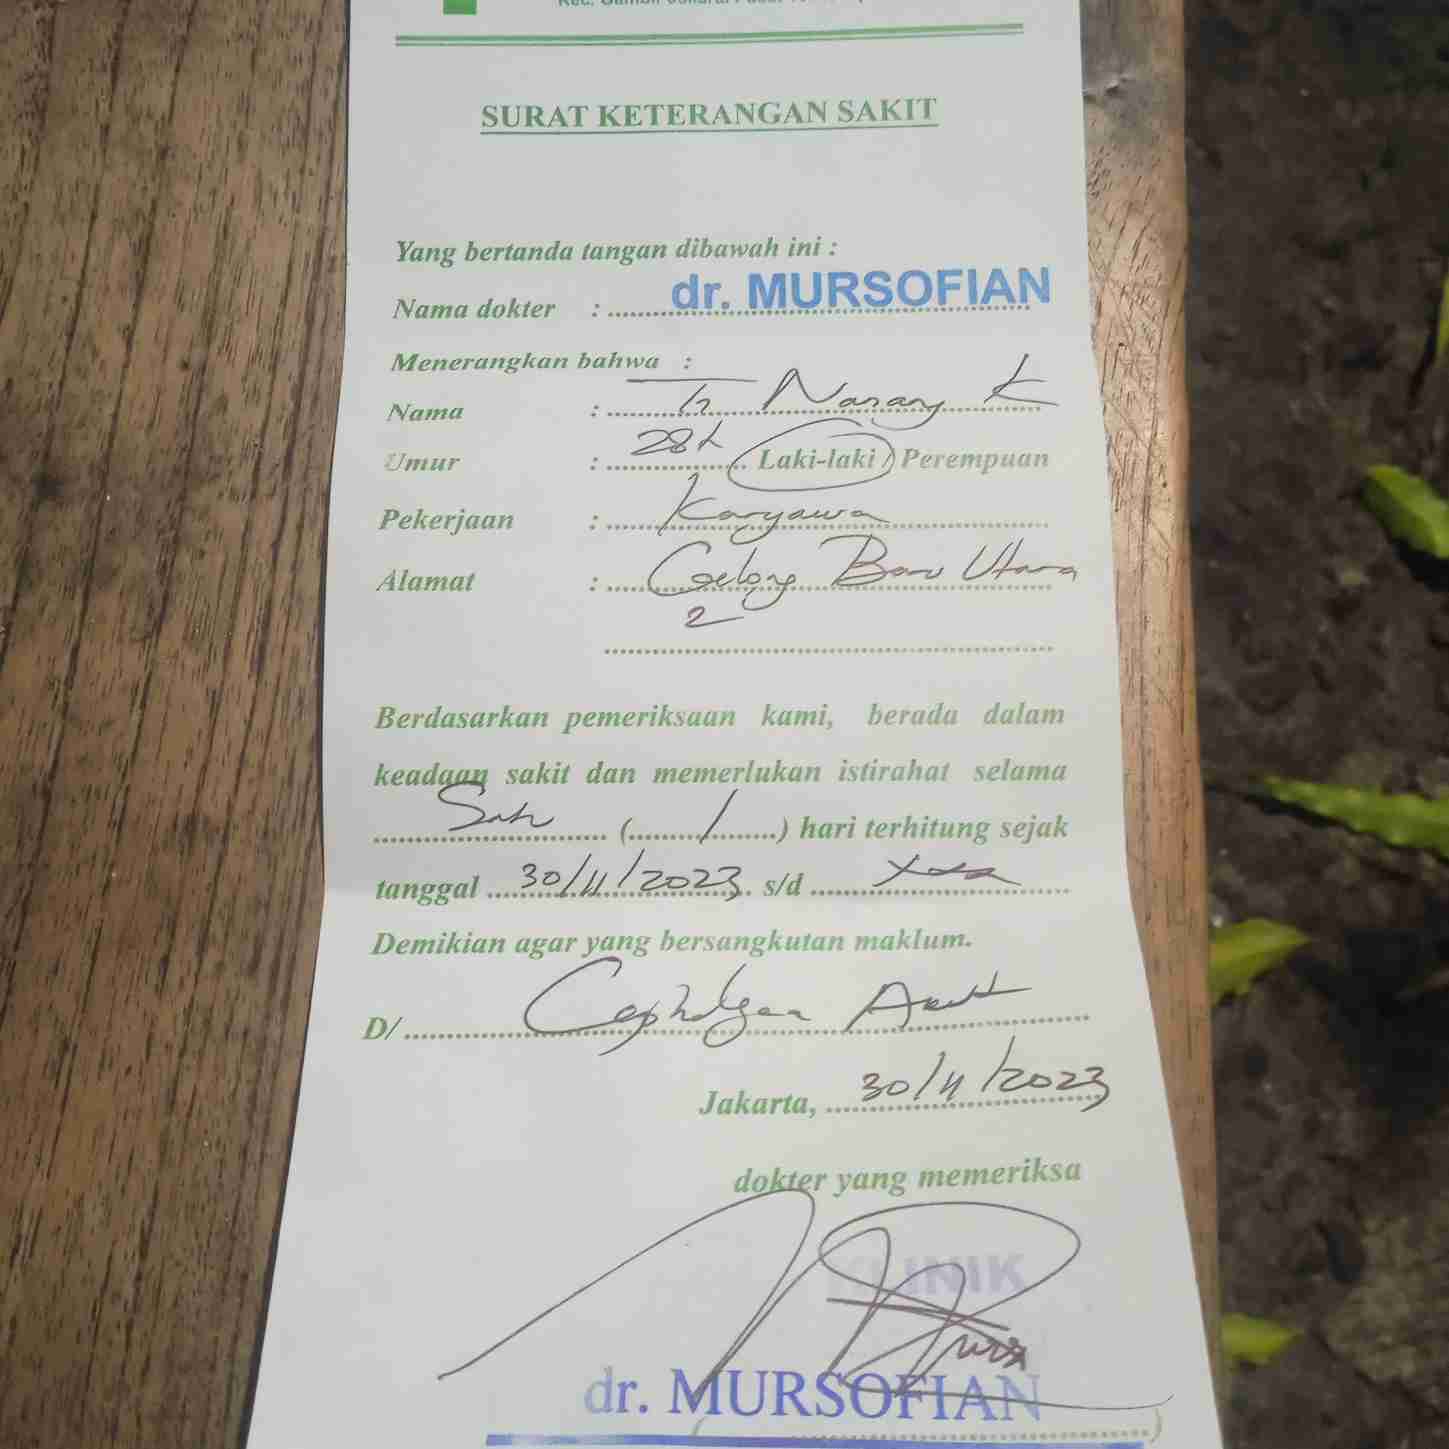 SURAT KETERANGAN SAKIT
Yang bertanda tangan dibawah ini :
Nama dokter : dr. MURSOFIAN
Menerangkan bahwa :
Nama : Tn Nanang K
Umur : 28 Laki-laki / Perempuan
Pekerjaan : Karyawan
Alamat : Gelong Baru Utara
2
Berdasarkan pemeriksaan kami, berada dalam
keadaan sakit dan memerlukan istirahat selama
Satu (1) hari terhitung sejak
tanggal 30/11/2023 s/d
Demikian agar yang bersangkutan maklum.
D/ Cephalgea Akut
Jakarta, 30/11/2023
dokter yang memeriksa
KLINIK
dr. MURSOFIAN